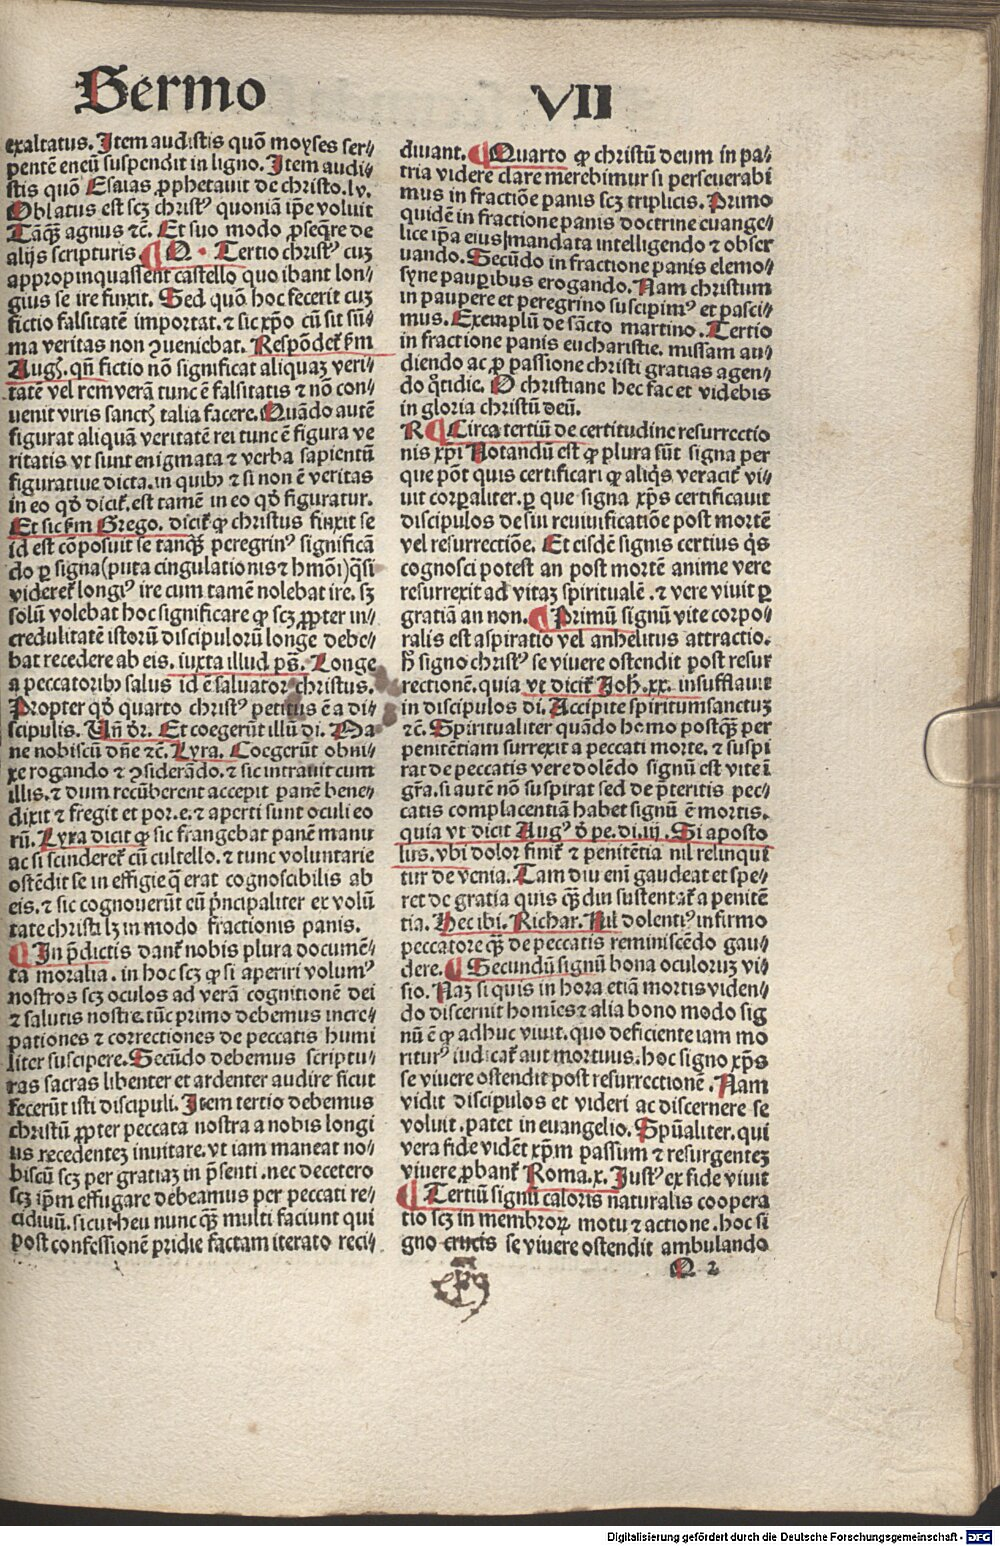 Sermo VII
exaltatus. Item audistis quō moyses ser⸗
pentē eneū suspendit in ligno. Item audi⸗
stis quō Esaias ꝓphetauit de christo. lv.
Oblatus est scꝫ christꝰ quoniā ip̄e voluit
Tāqꝫ agnus ⁊c̄. Et suo modo ꝓseqr̄e de
alijs scripturis. ¶ Q · Tertio christꝰ cuꝫ
appropinquassent castello quo ibant lon⸗
gius se ire finxit. Sed quō hoc fecerit cuꝫ
fictio falsitatē importat. ⁊ sic xp̄o cū sit sū⸗
ma veritas non ꝯueniebat. Respōdet̄ ẜm
Augꝰ. qn̄ fictio nō significat aliquaꝫ veri⸗
tatē vel rem verā tunc ē falsitatis ⁊ nō con⸗
uenit viris sanctꝭ talia facere. Quādo autē
figurat aliquā veritatē rei tunc ē figura ve
ritatis vt sunt enigmata ⁊ verba sapientū
figuratiue dicta. in quibꝰ ⁊ si non ē veritas
in eo qd̄ dicit̄. est tamē in eo qd̄ figuratur.
Et sic ẜm Grego. dicit̄ ꝙ christus finxit se
id est cōposuit se tanqꝫ peregrinꝰ significā
do ꝑ signa (puta cingulationis ⁊ hmōi) q̄si
videret̄ longiꝰ ire cum tamē nolebat ire. sꝫ
solū volebat hoc significare ꝙ scꝫ ꝓpter in⸗
credulitatē istorū discipulorū longe debe⸗
bat recedere ab eis. iuxta illud ps̄. Longe
a peccatoribꝰ salus id ē saluator christus.
Propter qd̄ quarto christꝰ petitus ē a di⸗
scipulis. Un̄ dr̄. Et coegerūt illū di. Ma
ne nobiscū dn̄e ⁊c̄. Lyra. Coegerūt obni⸗
xe rogando ⁊ ꝯsiderādo. ⁊ sic intrauit cum
illis. ⁊ dum recūberent accepit panē bene⸗
dixit ⁊ fregit et por. e. ⁊ aperti sunt oculi eo
rū. Lyra dicit ꝙ sic frangebat panē manu
ac si scinderet̄ cū cultello. ⁊ tunc voluntarie
ostēdit se in effigie q̄ erat cognoscibilis ab
eis. ⁊ sic cognouerūt eū p̄ncipaliter ex volū
tate christi lꝫ in modo fractionis panis.
¶ In p̄dictis dant̄ nobis plura documē⸗
ta moralia. in hoc scꝫ ꝙ si aperiri volumꝰ
nostros scꝫ oculos ad verā cognitionē dei
⁊ salutis nostre. tūc primo debemus incre⸗
pationes ⁊ correctiones de peccatis humi
liter suscipere. Secūdo debemus scriptu⸗
ras sacras libenter et ardenter audire sicut
fecerūt isti discipuli. Item tertio debemus
christū ꝓpter peccata nostra a nobis longi
us recedenteꝫ inuitare. vt iam maneat no⸗
biscū scꝫ per gratiaꝫ in p̄senti. nec decetero
scꝫ ip̄m effugare debeamus per peccati re⸗
cidiuū. sicut heu nunc qꝫ multi faciunt qui
post confessionē pridie factam iterato reci⸗
diuant. ¶ Quarto ꝙ christū deum in pa⸗
tria videre clare merebimur si perseuerabi
mus in fractiōe panis scꝫ triplicis. Primo
quidē in fractione panis doctrine euange⸗
lice ip̄a eius mandata intelligendo ⁊ obser
uando. Secūdo in fractione panis elemo⸗
syne pauꝑibus erogando. Nam christum
in paupere et peregrino suscipimꝰ et pasci⸗
mus. Exemplū de sācto martino. Tertio
in fractione panis eucharistie. missam au⸗
diendo ac ꝓ passione christi gratias agen⸗
do q̊tidie. O christiane hec fac et videbis
in gloria christū deū.
R ¶ Circa tertiū de certitudine resurrectio
nis xp̄i Notandū est ꝙ plura sūt signa per
que pōt quis certificari ꝙ aliqs̄ veracit̄ vi⸗
uit corꝑaliter. ꝑ que signa xp̄s certificauit
discipulos de sui reuiuificatiōe post mortē
vel resurrectiōe. Et eisdē signis certius qs̄
cognosci potest an post mortē anime vere
resurrexit ad vitaꝫ spiritualē. ⁊ vere viuit ꝑ
gratiā an non. ¶ Primū signū vite corpo⸗
ralis est aspiratio vel anhelitus attractio.
h̄ signo christꝰ se viuere ostendit post resur
rectionē. quia vt dicit̄ Joh̄. xx. insufflauit
in discipulos di. Accipite spiritum sanctuꝫ
⁊c̄. Spiritualiter quādo homo postqꝫ per
penitētiam surrexit a peccati morte. ⁊ suspi
rat de peccatis vere dolēdo signū est vite ī
gr̄a. si autē nō suspirat sed de p̄teritis pec⸗
catis complacentiā habet signū ē mortis.
quia vt dicit Augꝰ d̄ pe. di. iij. Si aposto
lus. vbi dolor finit̄ ⁊ penitētia nil relinqui
tur de venia. Tam diu eni gaudeat et spe⸗
ret de gratia quis qꝫdiu sustentat̄ a penitē
tia. Hec ibi. Richar. Nil dolentiꝰ infirmo
peccatore qꝫ de peccatis reminiscēdo gau⸗
dere. ¶ Secundū signū bona oculoruꝫ vi⸗
sio. Naꝫ si quis in hora etiā mortis viden⸗
do discernit homīes ⁊ alia bono modo sig
nū ē ꝙ adhuc viuit. quo deficiente iam mo
ritur⸣ iudicat̄ aut mortuus. hoc signo xp̄s
se viuere ostendit post resurrectionē. Nam
vidit discipulos et videri ac discernere se
voluit. patet in euangelio. Spūaliter. qui
vera fide vidēt xp̄m passum ⁊ resurgenteꝫ
viuere ꝓbant̄ Roma. x. Justꝰ ex fide viuit
¶ Tertiū signū caloris naturalis coopera
tio scꝫ in membroꝝ motu ⁊ actione. hoc si
gno crucis se viuere ostendit ambulando
Q 2
Digitalisierung gefördert durch die Deutsche Forschungsgemeinschaft - DFG